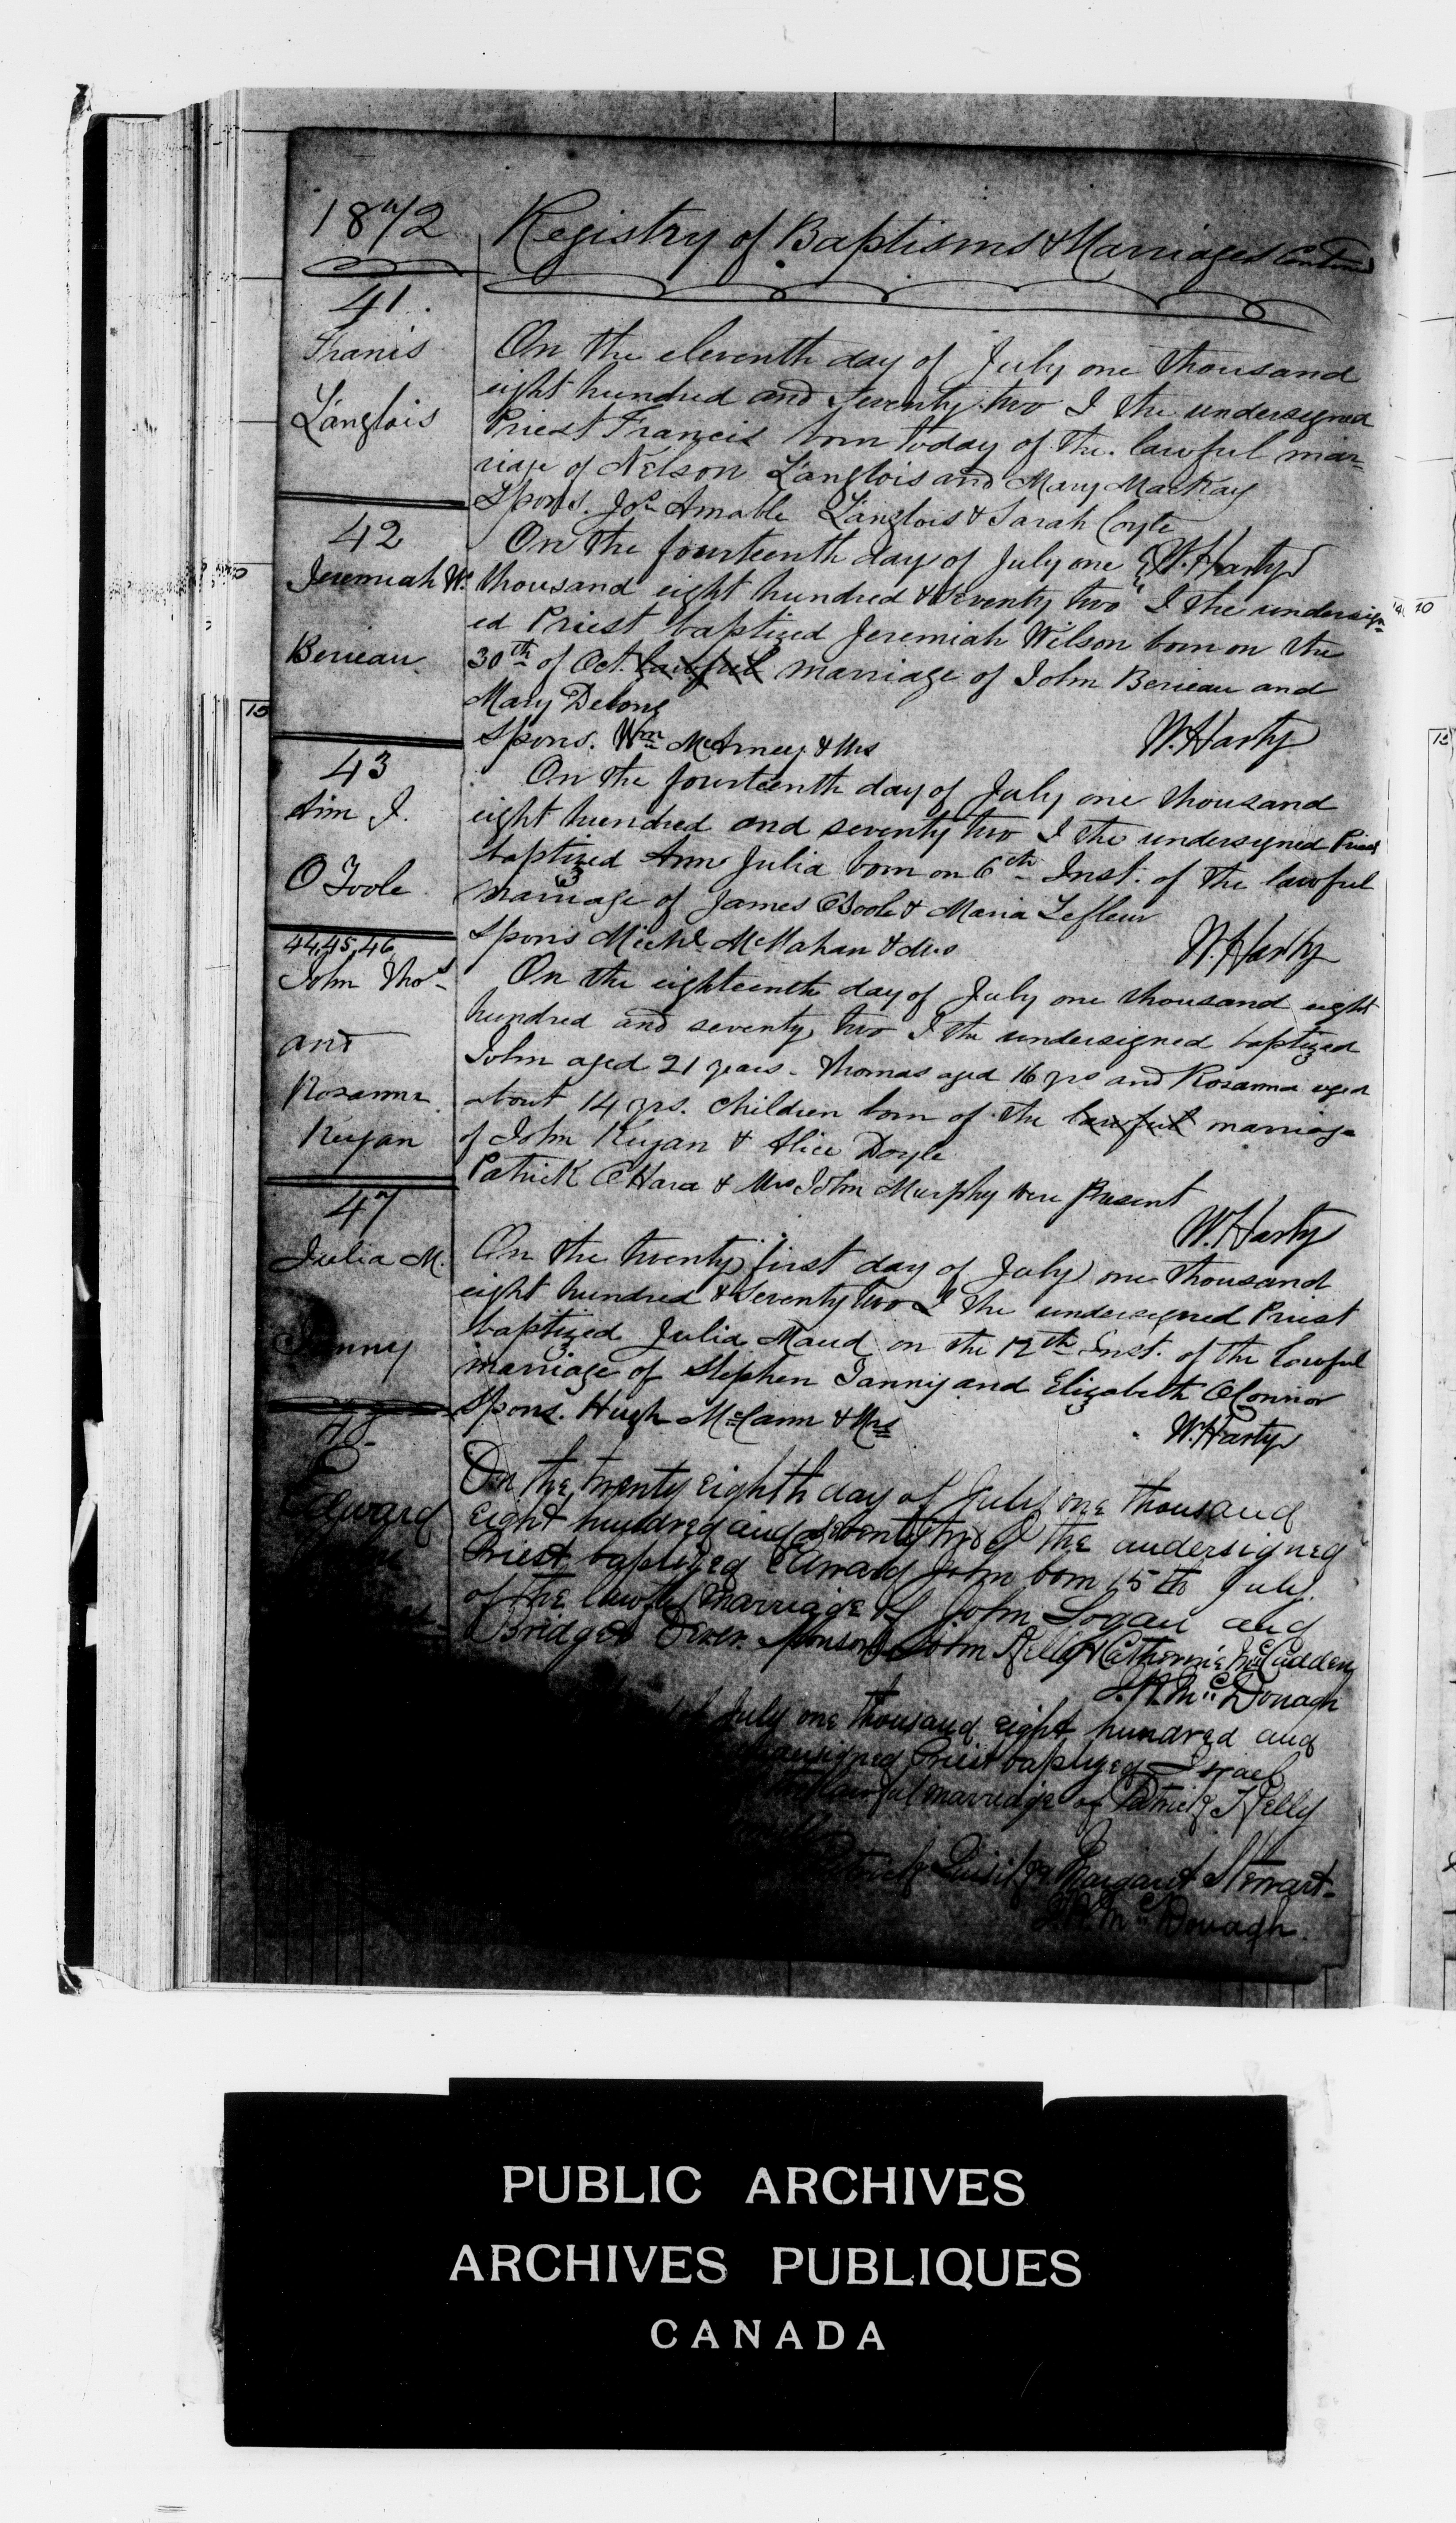 1872 Registry of Baptisms & Marriages Contind
41.
Franis
Langlois
On the eleventh day of July one thousand
eight hundred and seventy two I the undersigned
Priest Francis born today of the lawful mar=
riage of Nelson Langlois and Mary MacKay
Spons. Jos Amable Langlois & Sarah Coyle
W. Harty
42
Jeremiah W.
Berieau
On the fourteenth day of July one
thousand eight hundred & seventy two I the undersign=
ed Priest baptized Jeremiah Wilson born on the
30th of Oct. lawful marriage of John Berieau and
Mary Delong
Spons. Wm McArney & Mrs
W. Harty
43
Ann J.
O Toole
On the fourteenth day of July one thousand
eight hundred and seventy two I the undersigned Priest
baptized Ann Julia born on 6th Inst. of the lawful
marriage of James OToole & Maria Lefleur
Spons Michl McMahan & Mrs
W. Harty
44,45,46
John Thos
and
Rosanna
Kuyan
On the eighteenth day of July one thousand eight
hundred and seventy two I the undersigned baptized
John aged 21 years - Thomas aged 16 yrs and Rosanna aged
about 14 yrs. children born of the lawful marriage
of John Kuyan & Alice Doyle
Patrick OHara & Mrs John Murphy were Present
W. Harty
47
Julia M.
Tanny
On the twenty first day of July one thousand
eight hundred & seventy two I the undersigned Priest
baptized Julia Maud on the 12th Inst. of the lawful
marriage of Stephen Tanny and Elizabeth OConnor
Spons. Hugh McCann & Mrs
W. Harty
48
Edward
On the twenty eighth day of July one thousand
eight hundred and seventy two I the undersigned
Priest baptized Edward John born 15th July
of the lawful marriage of John Logan and
Bridget Dever Sponsors John Kelly & Catherine McCudden
McDonagh
of July one thousand eight hundred and
Priest baptized Israel
lawful marriage of Patrick Kelly
Patrick Margaret Stewart-
McDonagh.
15
40
15
PUBLIC ARCHIVES
ARCHIVES PUBLIQUES
CANADA